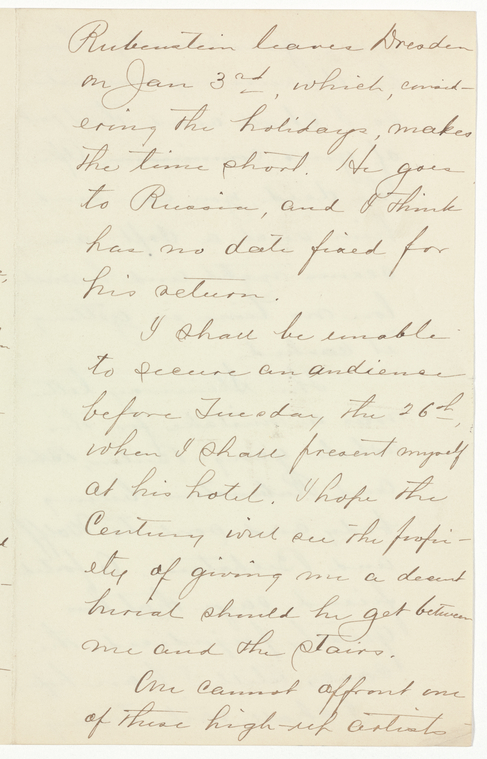 Rubenstein leaves Dresden
on Jan 3rd, which, consid-
ering the holidays, makes
the time short. He goes
to Russia, and I think
has no date fixed for
his return.
I shall be unable
to secure an audience
before Tuesday the 26th,
when I shall present myself
at his hotel. I hope the
Century will see the propri-
ety of giving me a decent
burial should he get between
me and the stairs.
One cannot affront one
of these high-up artists